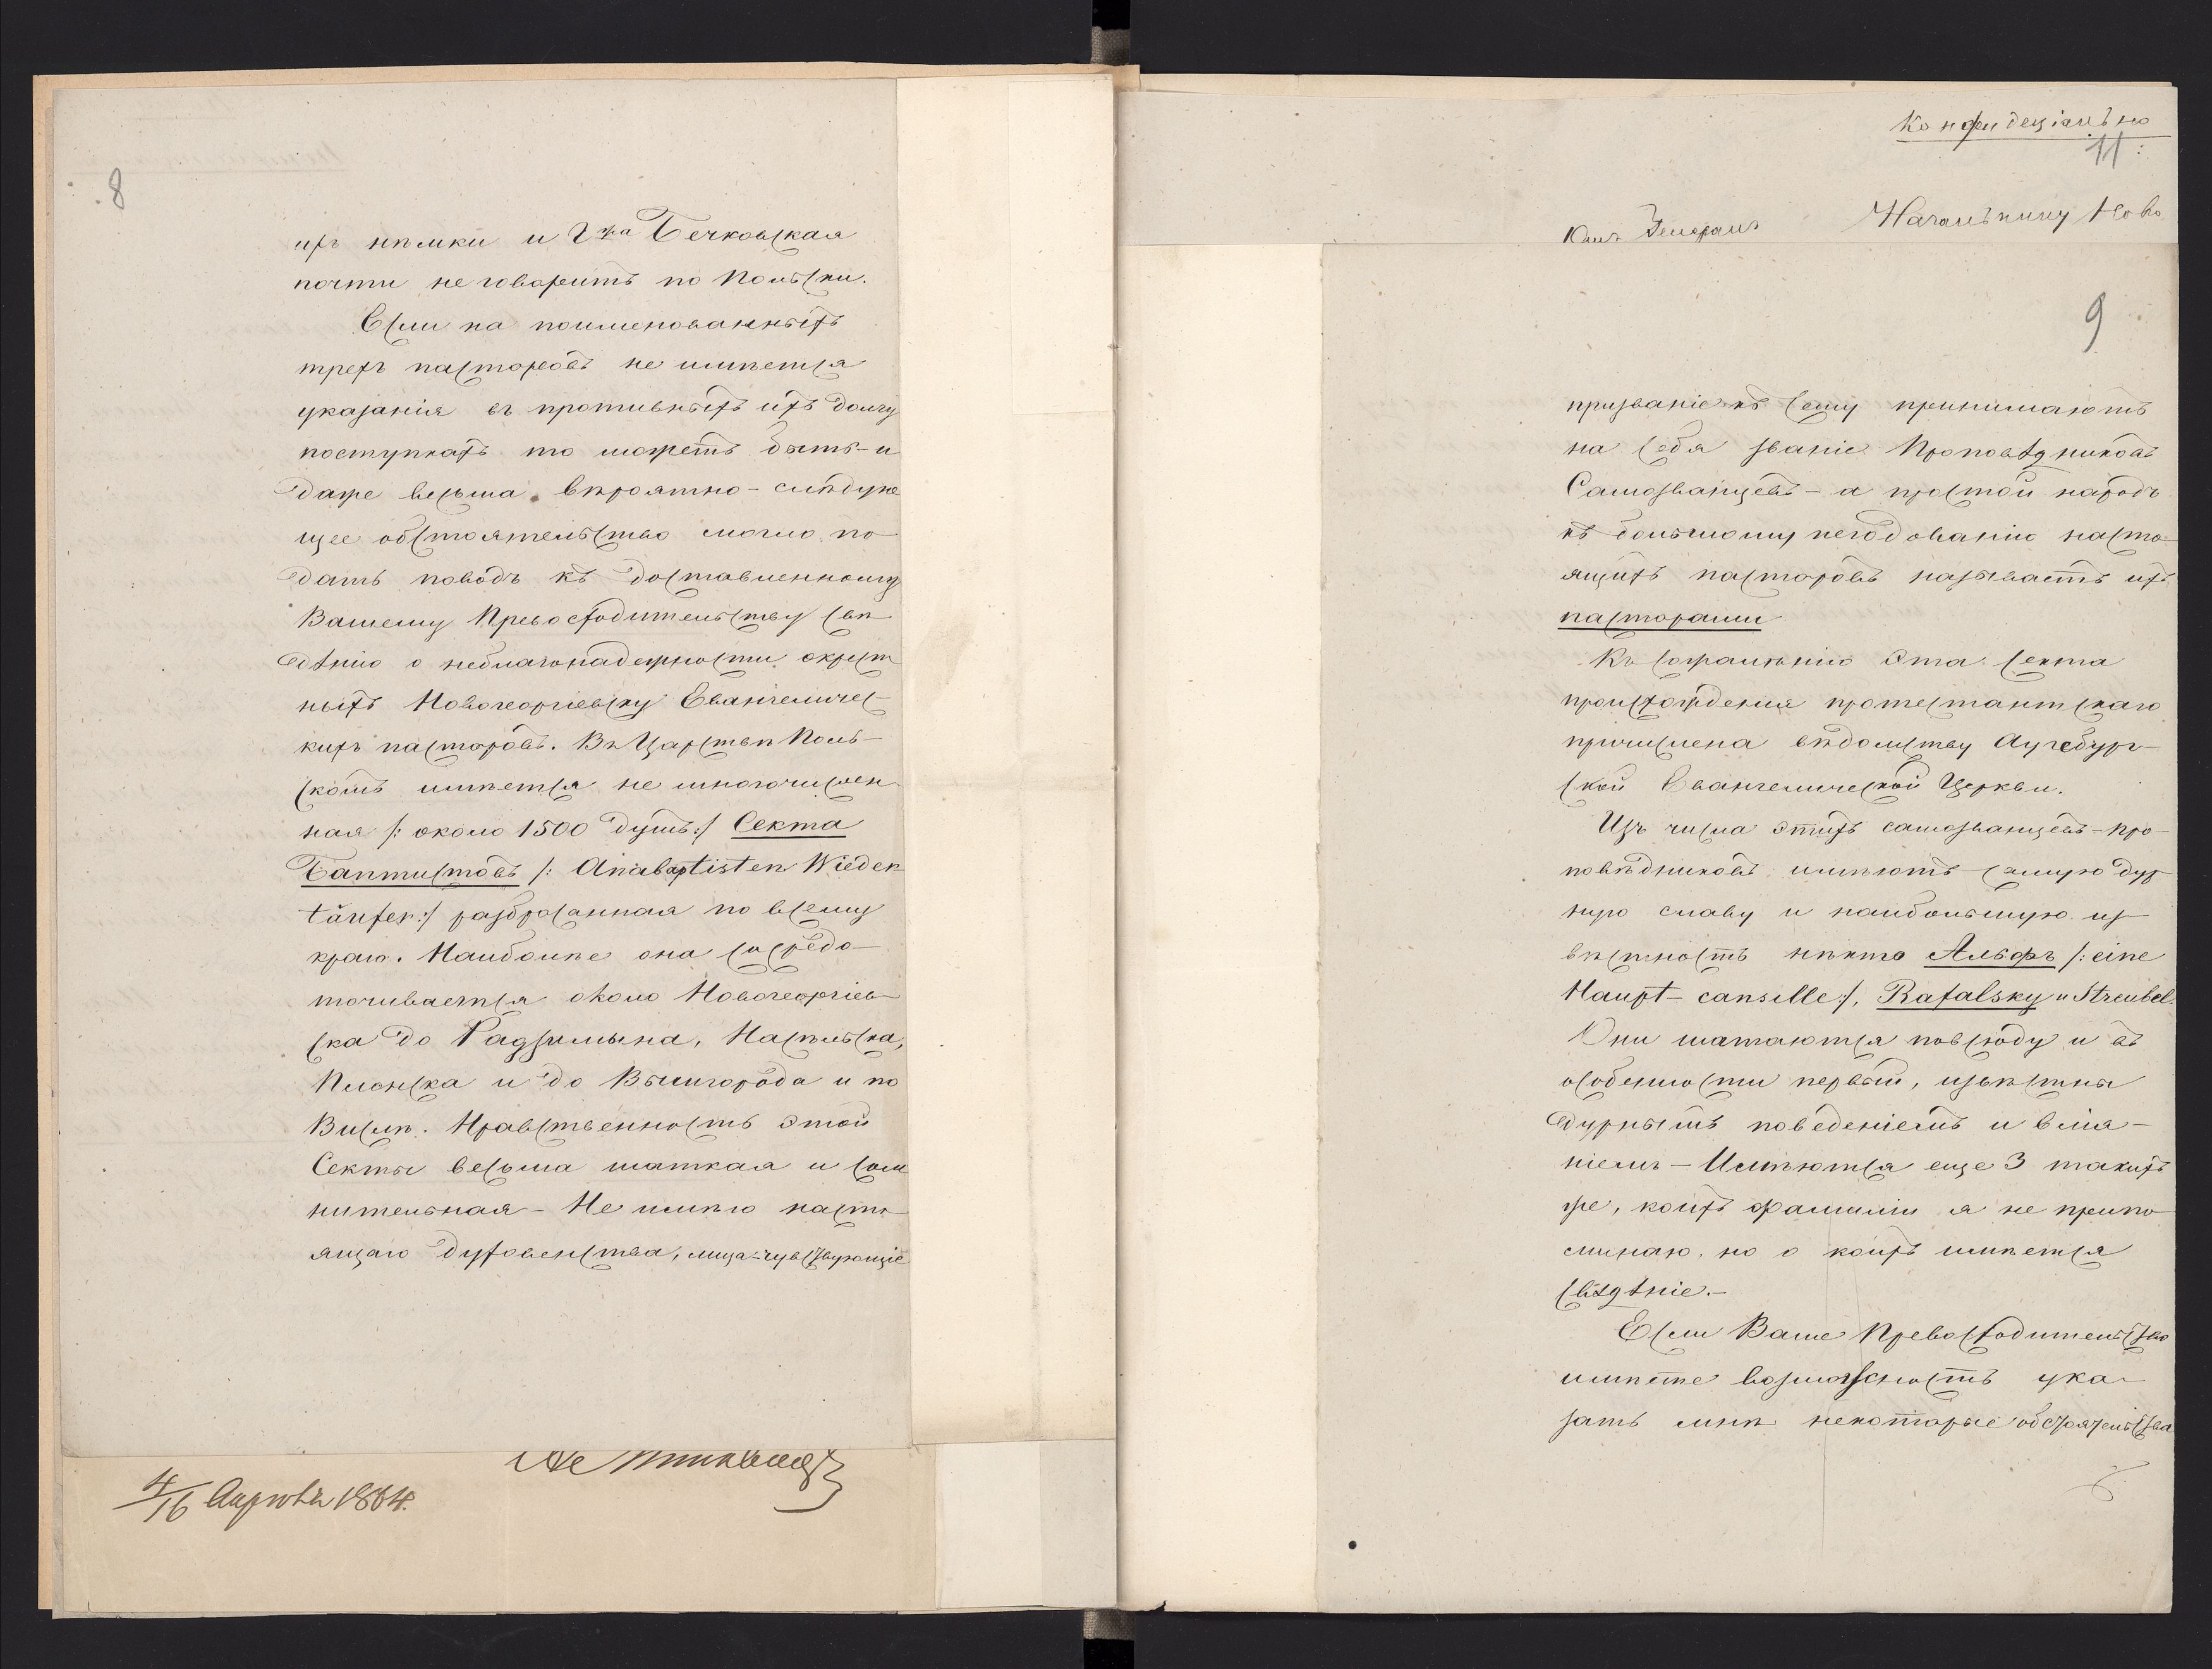 8
ихъ нѣмки и Гжа Бечковская
почти не говоритъ по Польски.
Если на поименованныхъ
трехъ пасторовъ не имѣется
указанія въ противныхъ ихъ долгу
поступкахъ то можетъ быть - и
даже весьма вѣроятно - слѣдую
щее обстоятельство могло по
дать поводъ къ доставленному
Вашему Превосходительству свѣ
дѣнію о неблагонадежности окрест
ныхъ Новогеоргіевску Евангеличес
кихъ пасторовъ. Въ Царствѣ Поль-
скомъ имѣется не многочислен
ная /: около 1500 душъ :/ Секта
Баптистовъ /: Anabaptisten Wieder
täufer :/ разбросанная по всему
краю. Наиболѣе она сосредо
точивается около Новогеоргіев
ска до Радзимына, Насѣльска,
Плонска и до Вышгорода и по
Вислѣ. Нравственность этой
Секты весьма шаткая и сом
нительная - Не имѣю насто
ящаго духовенства, лица чувствующіе
4/16 1864.
Конфиденціально
11
Начальнику Ново
Генералъ
9
призваніе къ сему принимаютъ
на себя званіе Проповѣдниковъ
Самозванцевъ - а простой народъ
къ большому негодованію насто
ящихъ пасторовъ называетъ ихъ
пасторами
Къ сожалѣнію эта секта
происхожденія протестантскаго
причислена вѣдомству Аугсбург-
ской Евангелической Церкви.
Изъ числа этихъ самозванцевъ-про-
повѣдниковъ имѣютъ самую дур
ную славу и наибольшую из
вѣстность нѣкто Альфъ /: eine
Haupt-canaille :/, Rafalsky и Streubel.
Они шатаются повсюду и въ
особенности первый, извѣстны
дурнымъ поведеніемъ и влія-
ніемъ - Имѣются еще 3 такихъ
же, коихъ фамиліи я не припо
минаю, но о коихъ имѣется
свѣдѣніе.-
Если Ваше Превосходительство
имѣете возможность ука-
зать мнѣ некоторые обстоятельства